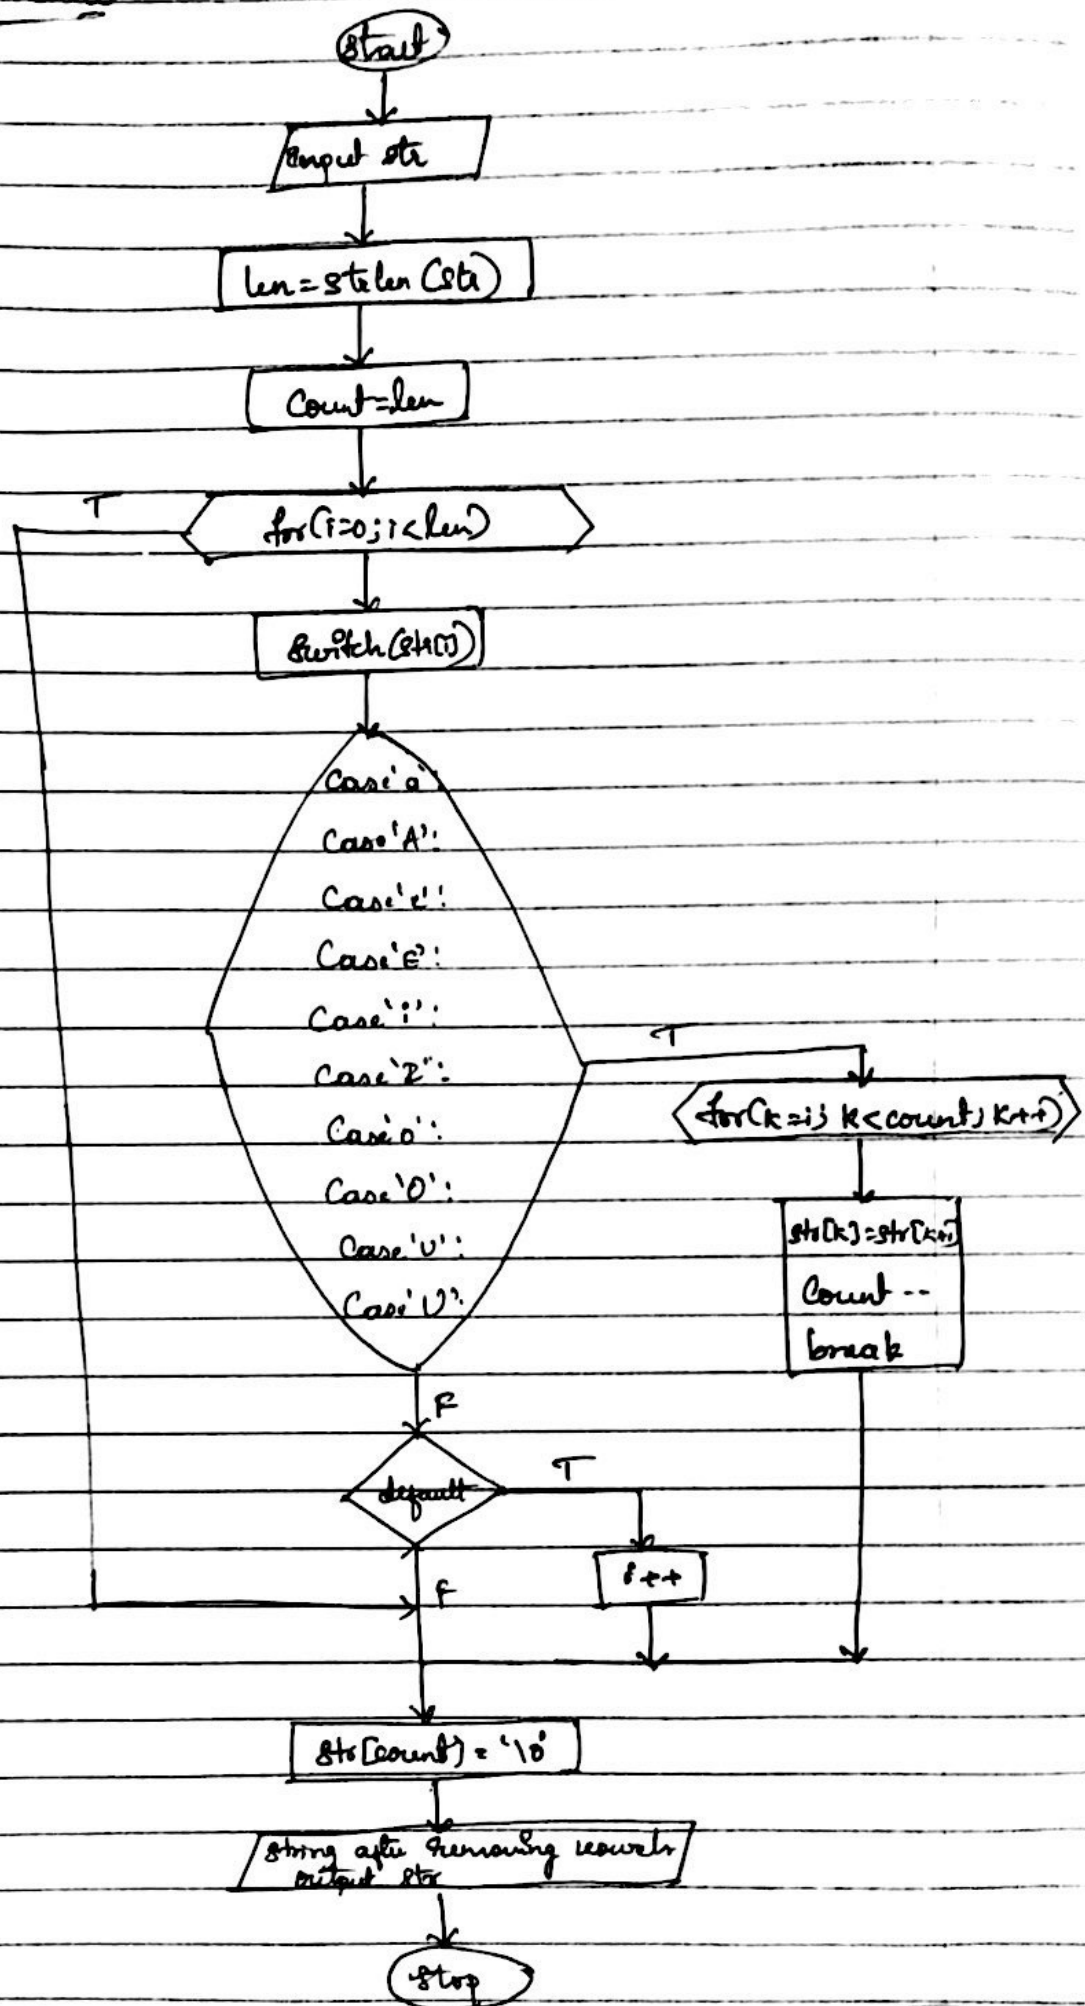 Start
Input str
len=strlen(str)
Count=len
T
for(i=0;i<len)
Switch(str[i])
Case'a':
Case'A':
Case'e':
Case'E':
Case'i':
Case'I':
Case'o':
Case'O':
Case'u':
Case'U':
T
for(k=i; k<count; k++)
str[k]=str[k+1]
Count--
break
F
default
T
i++
F
str[count] = '\0'
String after removing vowels
output str
Stop